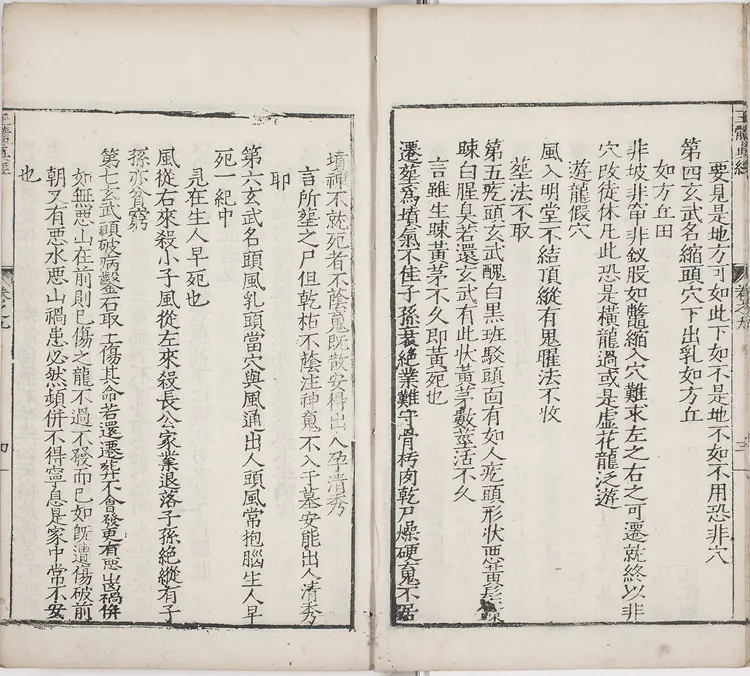 要見是地方可如此下如不是地不如不用恐非穴
第四玄武名縮頭穴下出乳如方丘
如方丘田
非坡非帘非釵股如鱉縮入穴難求左之右之可遷就終以非
穴改徒休凡此恐是橫龍過或是虛花龍泛遊
遊龍假穴
風入明堂一不結頂縱有鬼曜法不收
塟法不取
第五疙頭玄武醜白黑班駁頭面有如人疙頭形狀惡黄髟
疎白腥臭若還玄武有此狀黃茅數莖活不久
言雖生疎黃茅不久即黃死也
遷塟為墳氣不佳子孫衰絕業難守骨枯肉乾尸燥硬䰟不居
墳神不就死者不蔭䰟既散安得出人孕清秀
言所塟之尸但乾枯不蔭注神䰟不入于墓安能出人清秀
耶
第六玄武名頭風乳頭當穴與風通出人頭風常抱腦生人早
死一紀中
見在生人早死也
風從右來殺小子風從左來殺長公家業退落子孫絕縱有子
孫亦貧窮
第七玄武頭破病鑿石取土傷其命若還遷葬不會發更有惡山禍併
如無惡山在前則已傷之龍不過不發而已如既遭傷破前
朝又有惡水惡山禍患必然頻併不得寧息是家中常不安
也
卷之九
四